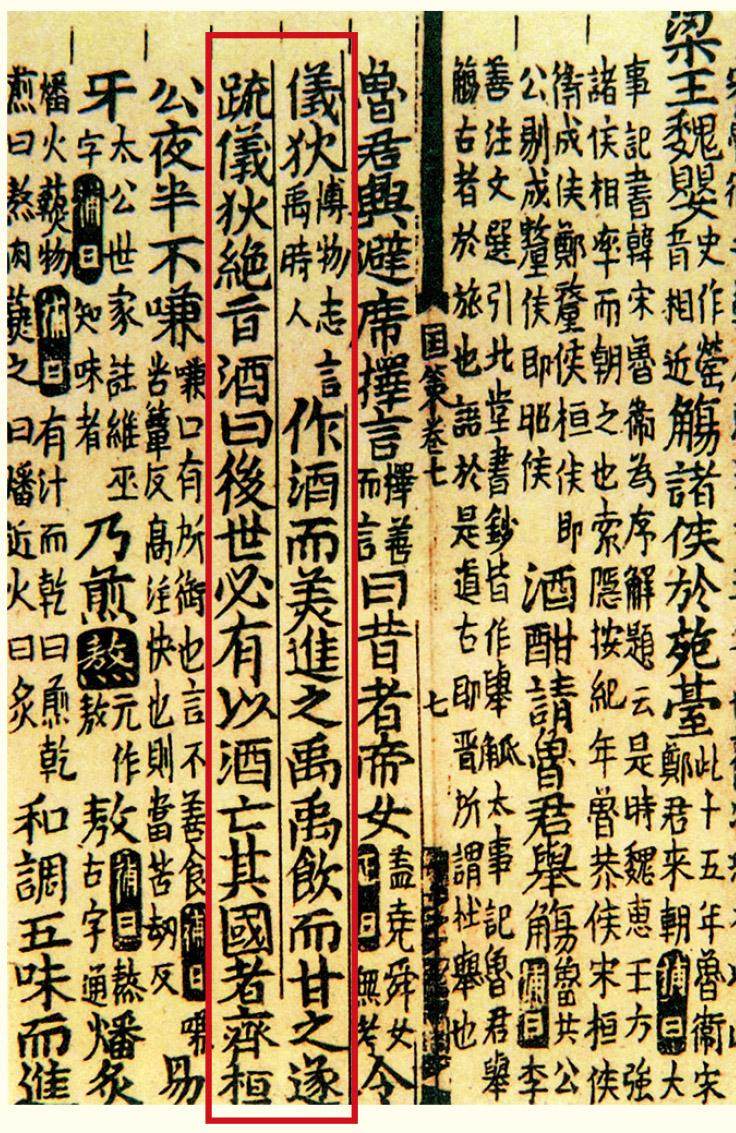 梁王魏嬰史作罃音相近觴諸侯於苑臺此十五年魯衛宋鄭君來朝補曰大
事記書韓宋魯衛為序解題云是時魏惠王方強
諸侯相率而朝之也索隱按紀年魯恭侯宋桓侯
衛成侯鄭釐侯桓侯即
公剔成釐侯即昭侯
酒酣請魯君舉觴魯共公補曰李
善注文選引北堂書鈔皆作舉觚大事記魯君舉
觴古者於旅也語於是道古即晋所謂杜舉也
国策卷七
七
魯君興避席擇言擇善而言曰昔者帝女蓋堯舜女正曰無考令
儀狄博物志言禹時人作酒而美進之禹禹飲而甘之遂
疏儀狄絶旨酒曰後世必有以酒亡其國者齊桓
公夜半不嗛嗛口有所銜也言不善食補曰嗛苦簟反高注快也則當苦劫反易
牙太公世家註維巫字補曰知味者乃煎熬元作敖敖補曰熬古字通燔炙
燔火爇物補曰有汁而乾曰煎乾
煎曰熬肉爇之曰燔近火曰炙
和調五味而進